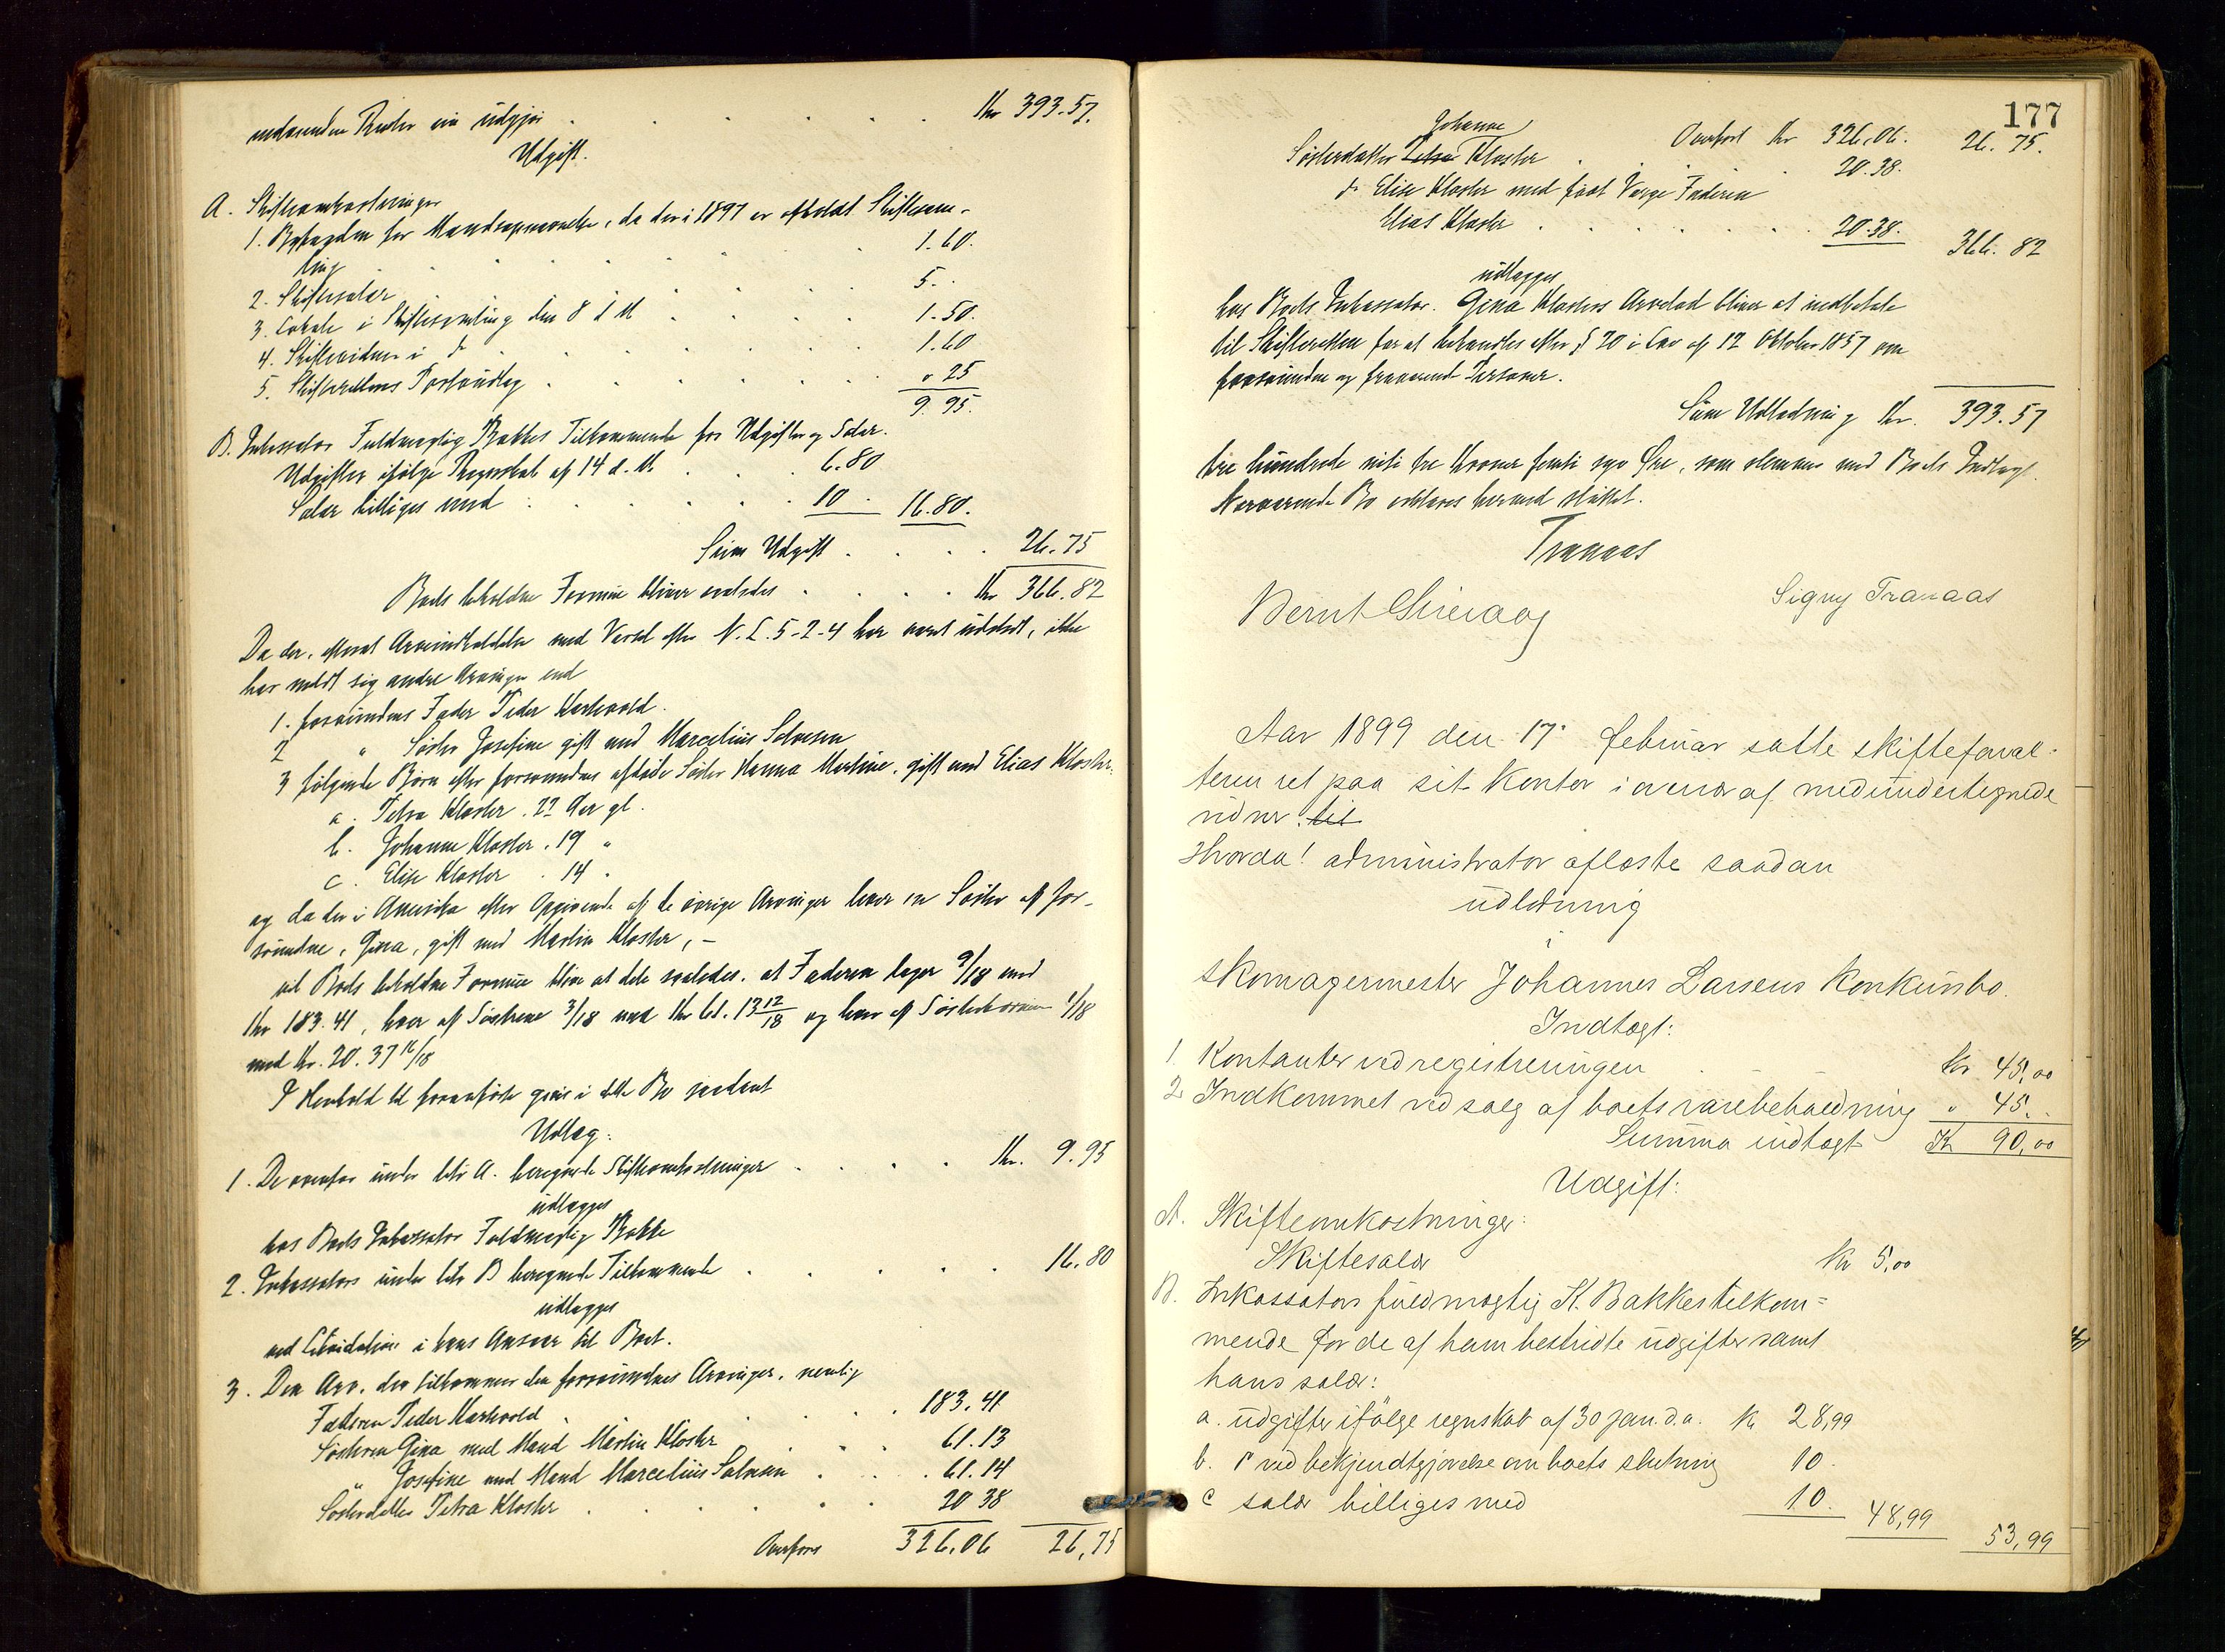 Renter nu udgjør . . . . . . Kr 393.57.
Udgift.
A. Skifteomkostninger
1. for Mandsopnævnelse, da der i 1897 er afholdt Skiftesam-
ling . . . . . . 1.60.
2. Skiftesalær . . . . . 5. "
3. Lokale i Skiftesamling den 8 d M . . . . 1.50.
4. Skiftevidner i do . . . . . 1.60
5. Skifterettens Portoudlæg . . . . . " 25
9.95.
B. Inkassator Fuldmægtig Bakkes Tilkommende for Udgifter og Salær.
Udgifter ifølge Regnskab af 14 d. M. . . 6.80
Salær billiges med . . . . . 10 - 16.80.
Sum Udgift . . . . 26.75
Boets beholdne Formue bliver saaledes . . . . Kr 366.82
Da der, efterat Arveindkaldelse med Varsel efter N. L. 5-2-4 har været udstedt, ikke
har meldt sig andre Arvinger end
1. forsvundnes Fader Peder Hartvold.
2 " Søster Josefine gift med Marcelius Salvesen
3 følgende Børn efter forsvundnes afdøde Søster Hanna Martine, gift med Elias Kloster.
a. Petra Kloster. 22 Aar gl.
b. Johanne Kloster. 19 "
c. Elise Kloster . 14 "
og da der i Amerika efter Opgivende af de øvrige Arvinger lever en Søster af for-
svundne, Gina, gift med Martin Kloster, -
vil Boets beholdne Formue blive at dele saaledes, at Faderen tager 9/18 med
Kr 183.41, hver af Søstrene 3/18 med Kr 61.13 12/18 og hver af Søsterbørnene 1/18
med Kr. 20.37 16/18
I Henhold til foranførte gives i dette Bo saadant
Udlæg:
1. De ovenfor under litr A. beregnede Skifteomkostninger . . . . Kr. 9.95
udlægges
hos Boets Inkassator Fuldmægtig Bakke
2. Inkassators under litr B beregnede Tilkommende . . . . . 16.80
udlægges
ved Likvidation i hans Ansvar til Boet.
3. Den Arv, der tilkommer den forsvundnes Arvinger, nemlig
Faderen Peder Hartvold . . . . 183.41
Søsteren Gina med Mand Martin Kloster . . . 61.13
" Josefine med Mand Marcelius Salvesen . . . 61.14
Søsterdatter Petra Kloster . . . . . 20 38
Overføres 326.06 26,75
177
Overført Kr 326.06. 26.75.
Johanne
Søsterdatter Petra Kloster . . . 20.38.
do Elise Kloster med født Værge Faderen
Elias Kloster . . . . . . 20.38. 366.82
udlægges
hos Boets Inkassator. Gina Klosters Arvelod bliver at indbetale
til Skifteretten for at behandles efter § 20 i Lov af 12 Oktober 1857 om
forsvundne og fraværende Personer.
Sum Udlodning Kr. 393.57
tre hundrede niti tre Kroner femti syv Øre, som stemmer med Boets Indtægt.
Nærværende Bo erklæres hermed sluttet.
Tranaas
Bernt Sirevaag Signy Tranaas
Aar 1899 den 17. februar satte skifteforval-
teren ret paa sit kontor i overvær af medundertegnede
vidner. til
Hvorda! administrator afløste saadan
udlodning
i
skomagermester Johannes Larsens konkursbo.
Indtægt:
1. Kontanter ved registreringen . . Kr 45,00
2 Indkommet ved salg af boets varebeholdning " 45. "
Summa indtægt Kr 90,00
Udgift:
A. Skifteomkostninger:
Skiftesalær Kr 5,00
B. Inkassators fuldmægtig K. Bakkes tilkom=
mende for de af ham bestridte udgifter samt
hans salær:
a. udgifter ifølge regnskab af 30 jan. d.a. Kr 28,99
b. do ved bekjendtgjørelse om boets slutning 10.
c salær billiges med 10. 48,99 53,99